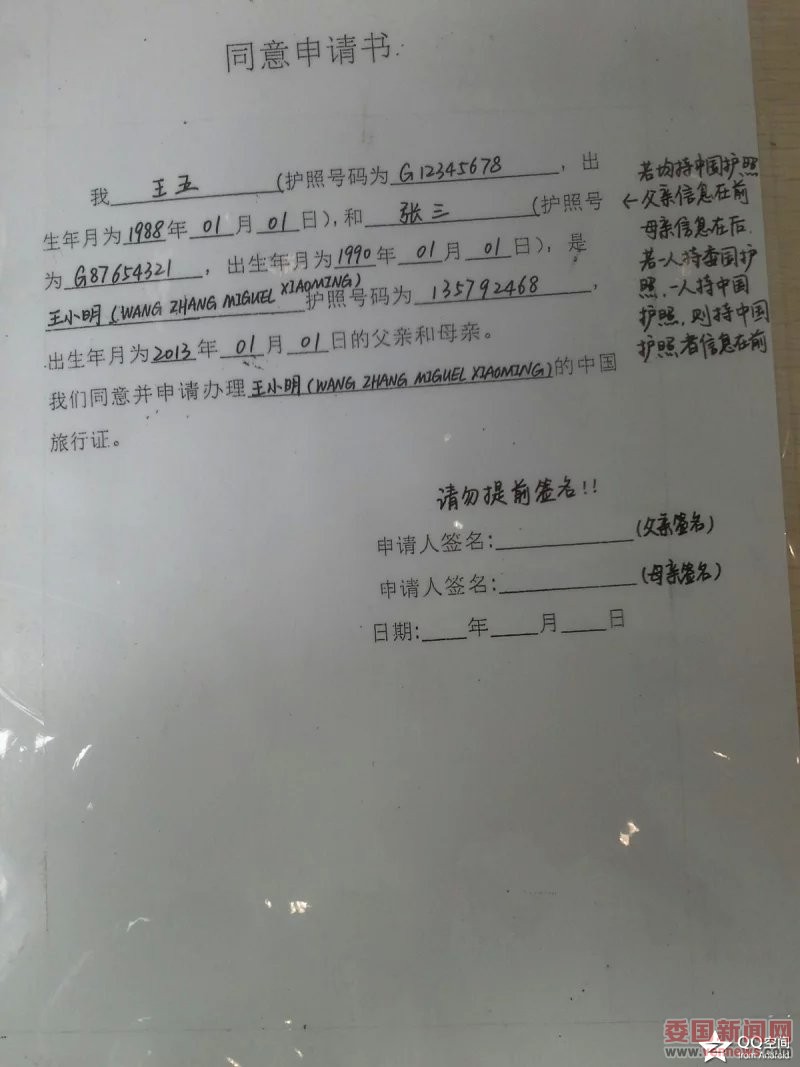 同意申请书.
我 王五 (护照号码为 G12345678 ，出
生年月为1988年 01 月 01 日),和 张三 (护照号
为 G87654321 ，出生年月为1990年 01 月 01 日)，是
王小明 (WANG ZHANG MIGUEL XIAOMING) 护照号码为 135792468 ，
出生年月为2013年 01 月 01 日的父亲和母亲。
我们同意并申请办理王小明(WANG ZHANG MIGUEL XIAOMING)的中国
旅行证。
若均持中国护照
←父亲信息在前
母亲信息在后.
若一人持委国护
照，一人持中国
护照，则持中国
护照者信息在前
请勿提前签名!!
申请人签名:________(父亲签名)
申请人签名:________(母亲签名)
日期:___年___月___日
委国新闻网
www.vennews.com
QQ空间
from Android